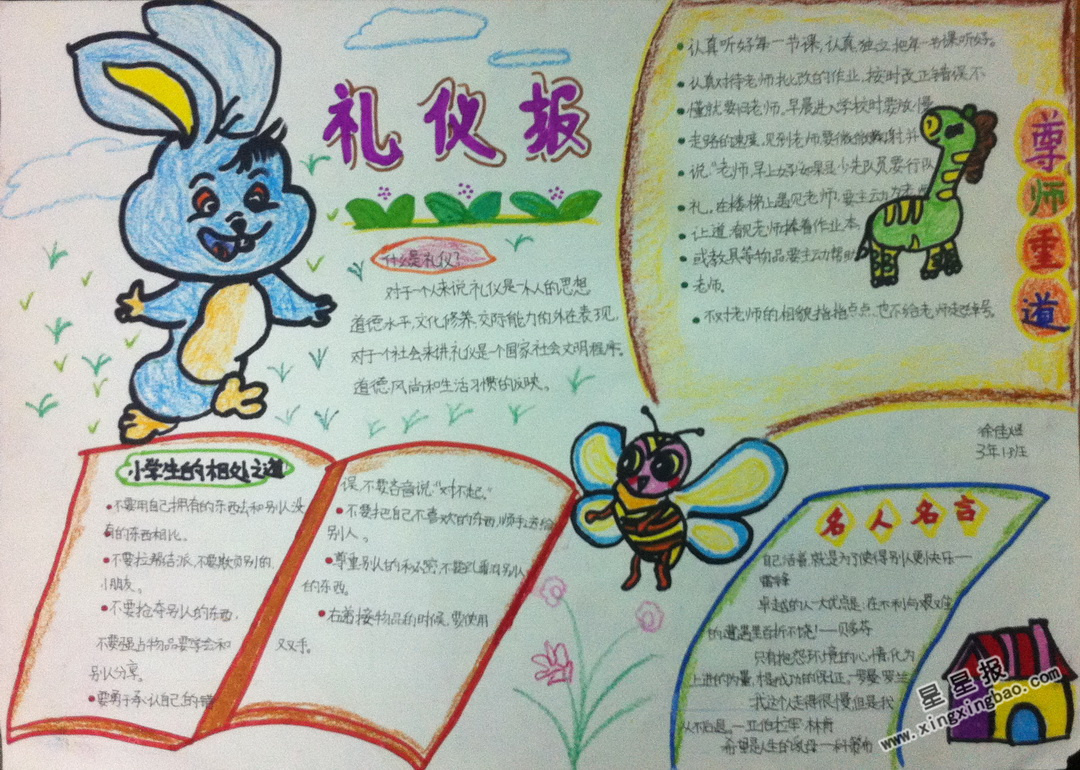 礼仪报
什么是礼仪?
对于一个人来说,礼仪是一个人的思想
道德水平,文化修养,交际能力的外在表现,
对于一个社会来讲,礼仪是一个国家社会文明程序。
道德,风尚和生活习惯的反映。
认真听好每一节课,认真,独立,把每一节课听好。
认真对待老师批改的作业,按时改正错误不
懂就要问老师,早晨进入学校时要放慢
走路的速度,见到老师要 并
说“老师,早上好”如果是少先队员要行队
礼,在楼梯上遇见老师,要主动为老师
让道看见老师捧着作业本
或教具等物品要主动帮助
老师.
不对老师的相貌指指点点,也不给老师起绰号。
尊师重道
徐佳
3年13班
小学生的相处之道
不要用自己拥有的东西去和别人没
有的东西相比。
不要拉帮结派,不要欺负别的,
小朋友。
不要抢夺别人的东西,
不要强占物品要学会和
别人分享。
要勇于承认自己的错
误,不要吝啬说“对不起。”
不要把自己不喜欢的东西,顺手送给
别人。
尊重别人的 不 看 别人
的东西。
右着接物品的时候,要使用
双手。
名人名言
自己活着,就是为了使得别人更快乐——
雷锋
卓越的人一大优点是:在不利与艰难
的遭遇里百折不饶!——贝多芬
只有抱怨环境的心情,化为
上进的力量,才是成功的保证。——罗曼·罗兰
我这个走得很慢,但是我
从不后退。——亚伯拉罕·林肯
希望是人生的
星星报
www.xingxingbao.com